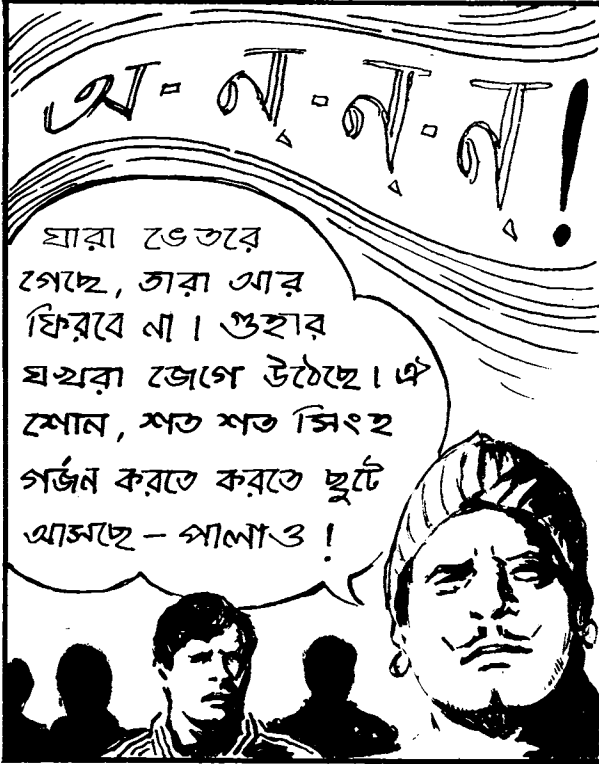 অ-ন্-ন্-ন্!
যারা ভেতরে
গেছে, তারা আর
ফিরবে না। গুহার
যখরা জেগে উঠেছে। ঐ
শোন, শত শত সিংহ
গর্জন করতে করতে ছুটে
আসছে – পালাও!